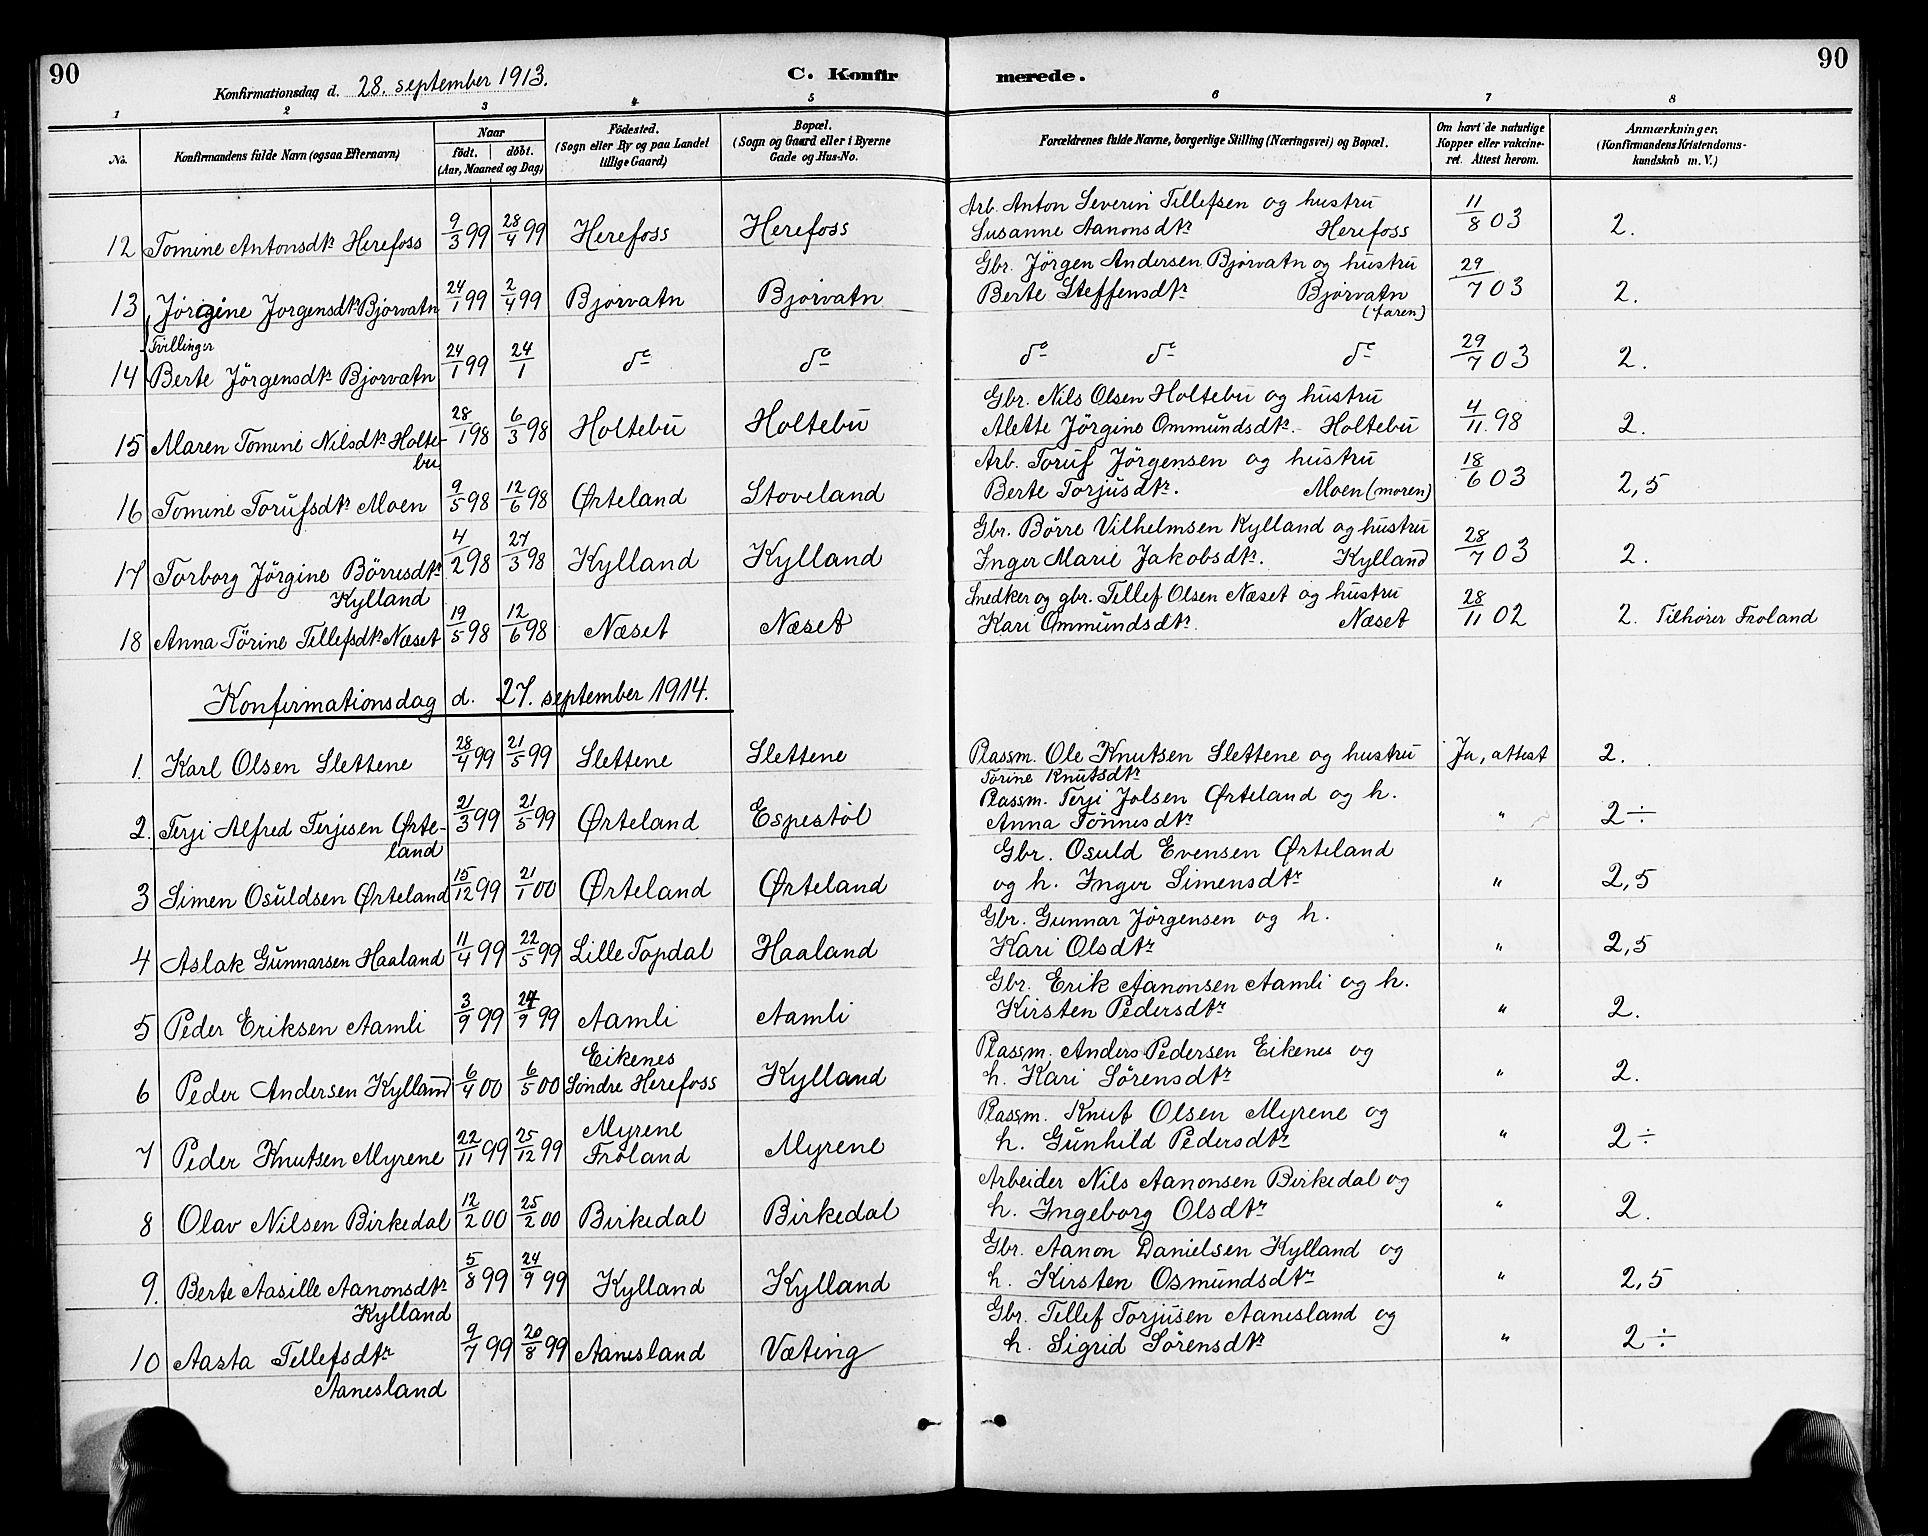 90
Konfirmationsdag d. 28. september 1913.
C. Konfirmerede.
90
1 2 3 4 5 6 7 8
No.
Konfirmandens fulde Navn (ogsaa Efternavn)
Naar
født. døbt.
(Aar, Maaned og Dag)
Födested.
(Sogn eller By og paa Landet
tillige Gaard)
Bopæl.
(Sogn og Gaard eller i Byerne
Gade og Hus-No.
Forældrenes fulde Navne, borgerlige Stilling (Næringsvei) og Bopæl.
Om havt de naturlige
Kopper eller vakcine-
ret. Attest herom.
Anmærkninger.
(Konfirmandens Kristendoms-
kundskab m. V.)
12 Tomine Antonsdtr Herefoss 9/3 99 28/4 99 Herefoss Herefoss Arb. Anton Severin Tellefsen og hustru
Susanne Aanonsdtr Herefoss 11/8 03 2.
13 Jörgine Jorgensdtr Bjorvatn 24/1 99 2/4 99 Bjorvatn Bjorvatn Gbr. Jörgen Andersen Bjorvatn og hustru
Berte Steffensdtr Bjorvatn 29/7 03 2.
(faren)
Tvillinger
14 Berte Jörgensdtr Bjorvatn 24/1 99 24/1 do do do do do 29/7 03 2.
15 Maren Tomine Nilsdtr Holte- 28/1 98 6/3 98 Holtebu Holtebu Gbr. Nils Olsen Holtebu og hustru
bu Alette Jörgine Ommundsdtr. Holtebu 4/11 98 2.
16 Tomine Torufsdtr Moen 9/5 98 12/6 98 Ørteland Stoveland Arb. Toruf Jörgensen og hustru
Berte Torjusdtr. Moen (moren) 18/6 03 2,5
17 Torborg Jörgine Börresdtr 4/2 98 27/3 98 Kylland Kylland Gbr. Börre Vilhelmsen Kylland og hustru
Kylland Inger Marie Jakobsdtr. Kylland 28/7 03 2.
18 Anna Törine Tellefsdtr Næset 19/5 98 12/6 98 Næset Næset Snedker og gbr. Tellef Olsen Næset og hustru
Kari Ommundsdtr. Næset 28/11 02 2. Tilhorer Froland
Konfirmationsdag d. 27. september 1914.
1. Karl Olsen Slettene 28/4 99 21/5 99 Slettene Slettene Plassm. Ole Knutsen Slettene og hustru Ja, attest 2.
Torine Knutsdtr
2. Terji Alfred Terjesen Ørte- 21/3 99 21/5 99 Ørteland Espestöl Plassm. Terji Jolsen Ørteland og h.
land Anna Tönnesdtr " 2÷
3 Simen Osuldsen Ørteland 15/12 99 21/1 00 Ørteland Ørteland Gbr. Osuld Evensen Ørteland
og h. Inger Simensdtr " 2,5
4 Aslak Gunnarsen Haaland 11/4 99 22/5 99 Lille Topdal Haaland Gbr. Gunnar Jörgensen og h.
Kari Olsdtr " 2,5
5 Peder Eriksen Aamli 3/9 99 24/9 99 Aamli Aamli Gbr. Erik Aanonsen Aamli og h.
Kirsten Pedersdtr " 2.
6 Peder Andersen Kylland 6/4 00 6/5 00 Eikenes
Söndre Herefoss Kylland Plassm. Anders Pedersen Eikenes og
h. Kari Sörensdtr " 2.
7 Peder Knutsen Myrene 22/11 99 25/12 99 Myrene
Froland Myrene Plassm. Knut Olsen Myrene og
h. Gunhild Pedersdtr " 2÷
8 Olav Nilsen Birkedal 12/2 00 25/2 00 Birkedal Birkedal Arbeider Nils Aanonsen Birkedal og
h. Ingeborg Olsdtr " 2.
9. Berte Aasille Aanonsdtr 5/8 99 24/9 99 Kylland Kylland Gbr. Aanon Danielsen Kylland og
Kylland h. Kirsten Osmundsdtr " 2,5
10 Aasta Tellefsdtr 9/7 99 20/8 99 Aanesland Væting Gbr. Tellef Torjusen Aanesland og
Aanesland h. Sigrid Sörensdtr " 2÷